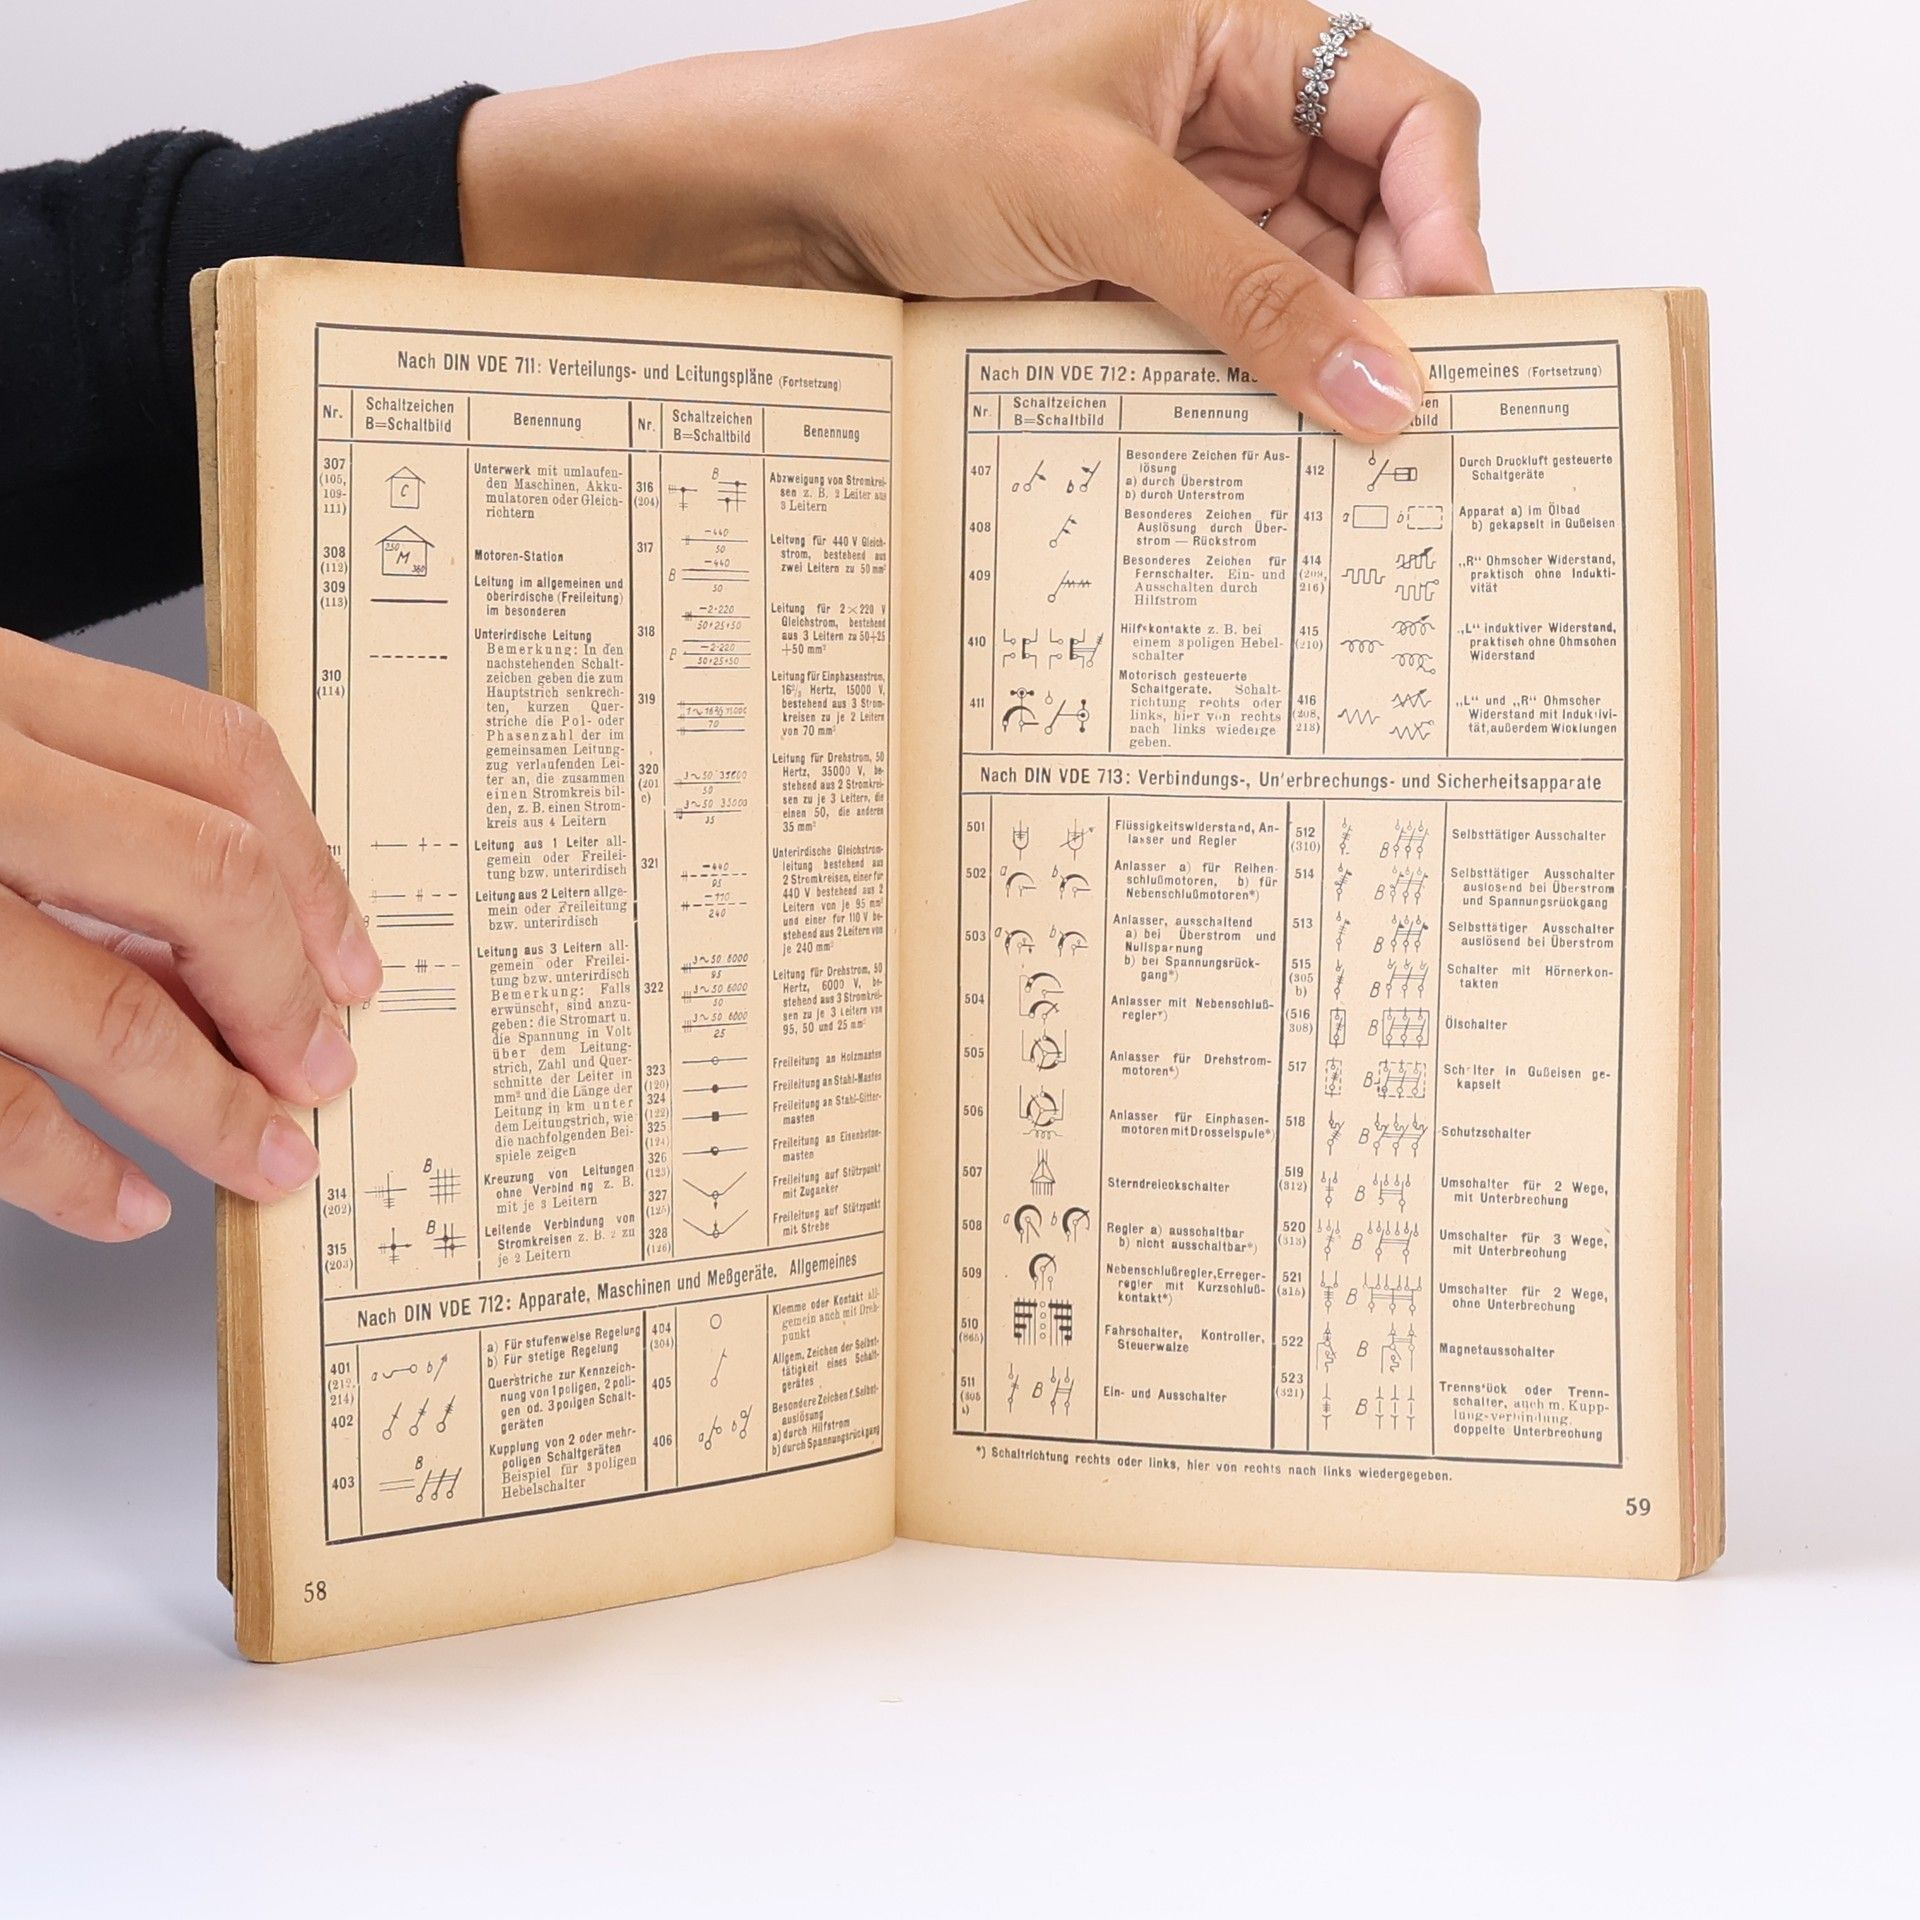 Nach DIN VDE 711: Verteilungs- und Leitungspläne (Fortsetzung)
Nr.
Schaltzeichen
B=Schaltbild
Benennung
307
(105,
109-
111)
C
Unterwerk mit umlaufen-
den Maschinen, Akku-
mulatoren oder Gleich-
richtern
308
(112)
250
M
360
Motoren-Station
309
(113)
Leitung im allgemeinen und
oberirdische (Freileitung)
im besonderen
310
(114)
Unterirdische Leitung
Bemerkung: In den
nachstehenden Schalt-
zeichen geben die zum
Hauptstrich senkrech-
ten, kurzen Quer-
striche die Pol- oder
Phasenzahl der im
gemeinsamen Leitung-
zug verlaufenden Lei-
ter an, die zusammen
einen Stromkreis bil-
den, z. B. einen Strom-
kreis aus 4 Leitern
Leitung aus 1 Leiter all-
gemein oder Freilei-
tung bzw. unterirdisch
B
Leitung aus 2 Leitern allge-
mein oder Freileitung
bzw. unterirdisch
B
Leitung aus 3 Leitern all-
gemein oder Freilei-
tung bzw. unterirdisch
Bemerkung: Falls
erwünscht, sind anzu-
geben: die Stromart u.
die Spannung in Volt
über dem Leitung-
strich, Zahl und Quer-
schnitte der Leiter in
mm² und die Länge der
Leitung in km unter
dem Leitungstrich, wie
die nachfolgenden Bei-
spiele zeigen
314
(202)
B
Kreuzung von Leitungen
ohne Verbind ng z. B.
mit je 3 Leitern
315
(203)
B
Leitende Verbindung von
Stromkreisen z. B. 2 zu
je 2 Leitern
Nr.
Schaltzeichen
B=Schaltbild
Benennung
316
(204)
B
Abzweigung von Stromkrei-
sen z. B. 2 Leiter aus
3 Leitern
317
–440
50
B
–440
50
Leitung für 440 V Gleich-
strom, bestehend aus
zwei Leitern zu 50 mm²
318
–2·220
50+25+50
–2·220
50+25+50
Leitung für 2×220 V
Gleichstrom, bestehend
aus 3 Leitern zu 50+25
+50 mm²
319
1~16⅔ 15000
70
Leitung für Einphasenstrom,
16²/₃ Hertz, 15000 V,
bestehend aus 3 Strom-
kreisen zu je 2 Leitern
von 70 mm²
320
(201
c)
3~50 35000
50
3~50 35000
35
Leitung für Drehstrom, 50
Hertz, 35000 V, be-
stehend aus 2 Stromkrei-
sen zu je 3 Leitern, die
einen 50, die anderen
35 mm²
321
–440
95
–110
240
Unterirdische Gleichstrom-
leitung bestehend aus
2 Stromkreisen, einer für
440 V bestehend aus 2
Leitern von je 95 mm²
und einer für 110 V be-
stehend aus 2 Leitern von
je 240 mm²
322
3~50 6000
95
3~50 6000
50
3~50 6000
25
Leitung für Drehstrom, 50
Hertz, 6000 V, be-
stehend aus 3 Stromkrei-
sen zu je 3 Leitern von
95, 50 und 25 mm²
323
(120)
Freileitung an Holzmasten
324
(122)
Freileitung an Stahl-Masten
325
(124)
Freileitung an Stahl-Gitter-
masten
326
(123)
Freileitung an Eisenbeton-
masten
327
(125)
Freileitung auf Stützpunkt
mit Zuganker
328
(126)
Freileitung auf Stützpunkt
mit Strebe
Nach DIN VDE 712: Apparate, Maschinen und Meßgeräte. Allgemeines
401
(212,
214)
a b
a) Für stufenweise Regelung
b) Für stetige Regelung
402
Querstriche zur Kennzeich-
nung von 1 poligen, 2 poli-
gen od. 3 poligen Schalt-
geräten
403
B
Kupplung von 2 oder mehr-
poligen Schaltgeräten
Beispiel für 3 poligen
Hebelschalter
404
(304)
Klemme oder Kontakt all-
gemein auch mit Dreh-
punkt
405
Allgem. Zeichen der Selbst-
tätigkeit eines Schalt-
gerätes
406
a b
Besondere Zeichen f. Selbst-
auslösung
a) durch Hilfstrom
b) durch Spannungsrückgang
58
Nach DIN VDE 712: Apparate. Allgemeines (Fortsetzung)
Nr.
Schaltzeichen
B=Schaltbild
Benennung
407
a b
Besondere Zeichen für Aus-
lösung
a) durch Überstrom
b) durch Unterstrom
408
Besonderes Zeichen für
Auslösung durch Über-
strom — Rückstrom
409
Besonderes Zeichen für
Fernschalter. Ein- und
Ausschalten durch
Hilfstrom
410
Hilfskontakte z. B. bei
einem 3 poligen Hebel-
schalter
411
Motorisch gesteuerte
Schaltgeräte. Schalt-
richtung rechts oder
links, hier von rechts
nach links wiederge
geben.
Benennung
412
Durch Druckluft gesteuerte
Schaltgeräte
413
a b
Apparat a) im Ölbad
b) gekapselt in Gußeisen
414
(209,
216)
„R“ Ohmscher Widerstand,
praktisch ohne Indukti-
vität
415
(210)
„L“ induktiver Widerstand,
praktisch ohne Ohmschen
Widerstand
416
(208,
213)
„L“ und „R“ Ohmscher
Widerstand mit Induktivi-
tät, außerdem Wicklungen
Nach DIN VDE 713: Verbindungs-, Unterbrechungs- und Sicherheitsapparate
501
Flüssigkeitswiderstand, An-
lasser und Regler
502
a b
Anlasser a) für Reihen-
schlußmotoren, b) für
Nebenschlußmotoren*)
503
a b
Anlasser, ausschaltend
a) bei Überstrom und
Nullspannung
b) bei Spannungsrück-
gang*)
504
Anlasser mit Nebenschluß-
regler*)
505
Anlasser für Drehstrom-
motoren*)
506
Anlasser für Einphasen-
motoren mit Drosselspule*)
507
Sterndreieckschalter
508
a b
Regler a) ausschaltbar
b) nicht ausschaltbar*)
509
Nebenschlußregler, Erreger-
regler mit Kurzschluß-
kontakt*)
510
Fahrschalter, Kontroller,
Steuerwalze
511
B
Ein- und Ausschalter
512
(310)
B
Selbsttätiger Ausschalter
514
B
Selbsttätiger Ausschalter
auslösend bei Überstrom
und Spannungsrückgang
513
B
Selbsttätiger Ausschalter
auslösend bei Überstrom
515
(305
b)
B
Schalter mit Hörnerkon-
takten
(516
308)
B
Ölschalter
517
B
Schalter in Gußeisen ge-
kapselt
518
B
Schutzschalter
519
(312)
B
Umschalter für 2 Wege,
mit Unterbrechung
520
(313)
B
Umschalter für 3 Wege,
mit Unterbrechung
521
(315)
B
Umschalter für 2 Wege,
ohne Unterbrechung
522
B
Magnetausschalter
523
(321)
B
Trennstück oder Trenn-
schalter, auch m. Kupp-
lungsverbindung,
doppelte Unterbrechung
*) Schaltrichtung rechts oder links, hier von rechts nach links wiedergegeben.
59